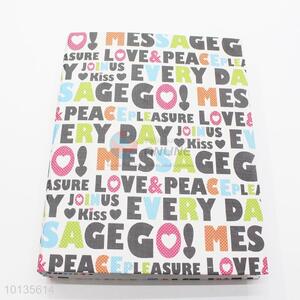 GO! MESSAGE G
EASURE LOVE & PEACE
JOIN US
Kiss EVERY DAY
GO! MES
PEACE PLEASURE LOV
EVERY DAY JOIN US
Kiss
GO! MESSAGE G
EASURE LOVE & PEACE PLEA
JOIN US
Kiss EVERY DA
SAGE GO! MES
& PEACE PLEASURE LOVE
10135614